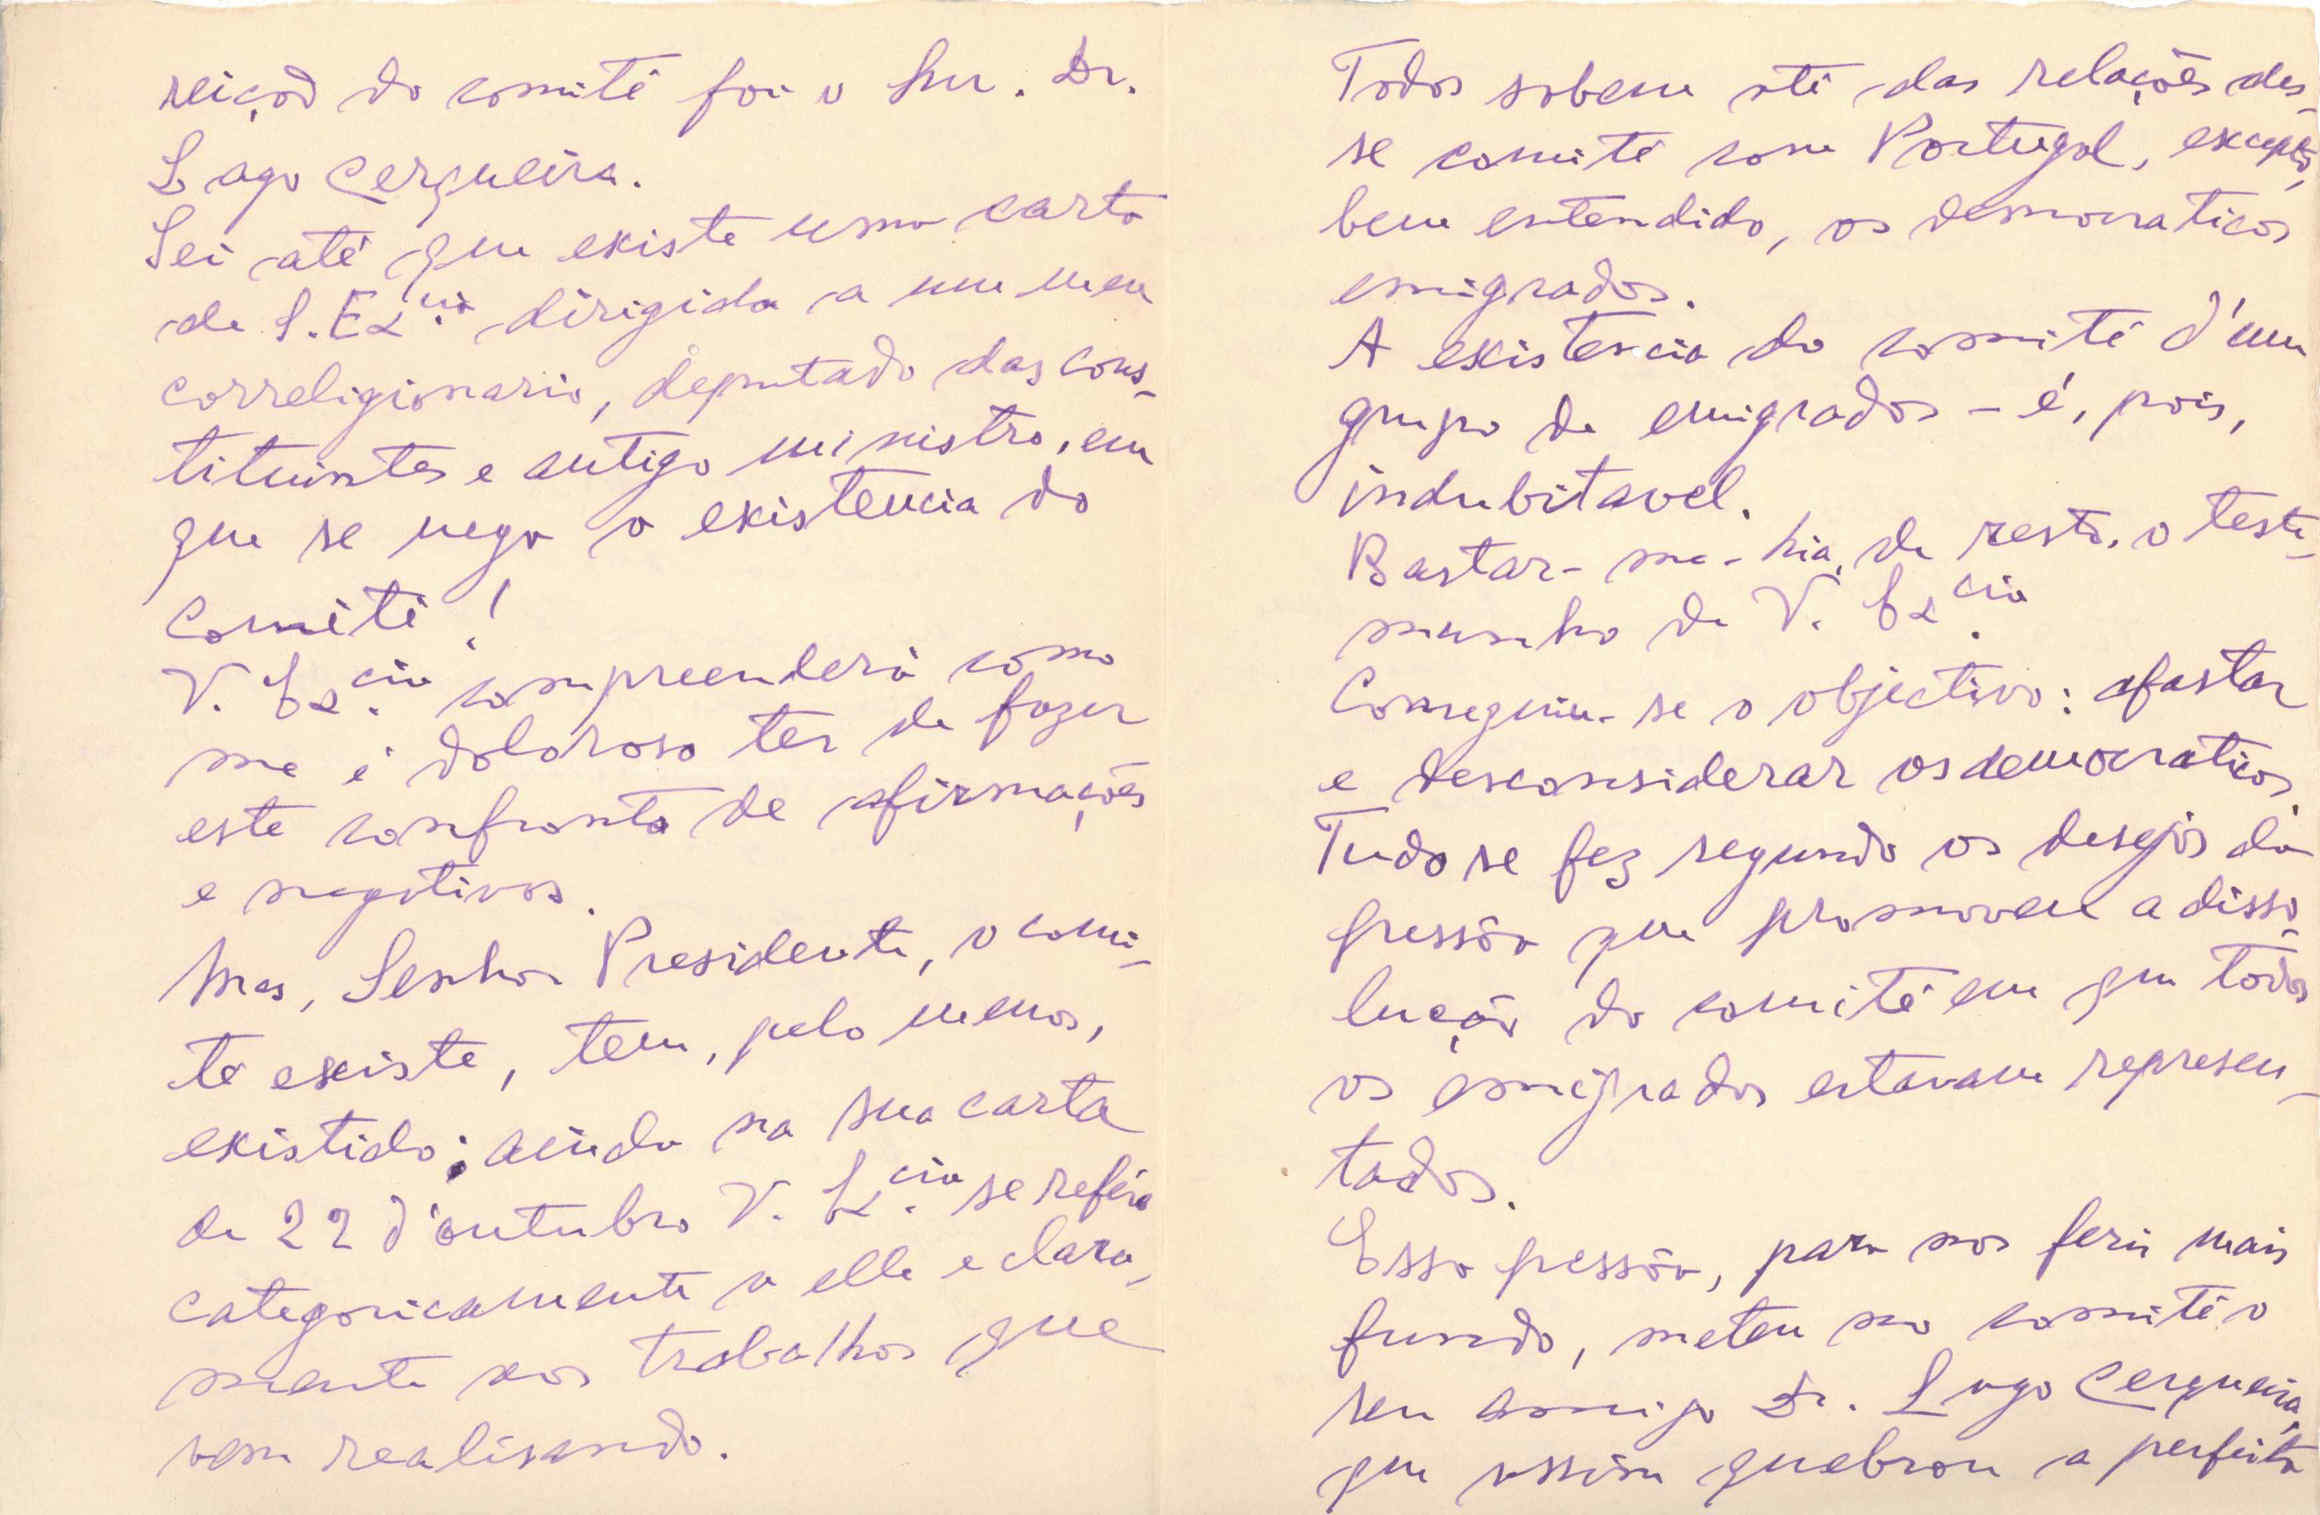 reição do comité foi o Snr. Dr.
Lago Cerqueira.
Sei até que existe uma carta
de S. Ex.cia dirigida a um meu
correligionario, deputado das cons-
tituintes e antigo ministro, em
que se nega a existencia do
Comité!
V. Ex.cia compreenderá como
me é doloroso ter de fazer
este confronto de afirmações
e negativas.
Mas, Senhor Presidente, o comi-
té existe, tem, pelo menos,
existido; ainda na sua carta
de 22 d'outubro V. Ex.cia se refére
categoricamente a elle e clara-
mente aos trabalhos que
vem realisando.
Todos sabem até das relações des-
se comité com Portugal, excepto,
bem entendido, os democraticos
emigrados.
A existencia do comité d'um
grupo de emigrados – é, pois,
indubitavel.
Bastar-me-hia, de resto, o teste-
munho de V. Ex.cia
Conseguiu-se o objectivo: afastar
e desconsiderar os democraticos.
Tudo se fez segundo os desejos da
pessôa que promoveu a disso-
lução do comité em que todos
os emigrados estavam represen-
tados.
Essa pessôa, para nos ferir mais
fundo, meteu no comité o
seu amigo Dr. Lago Cerqueira,
que assim quebrou a perfeita